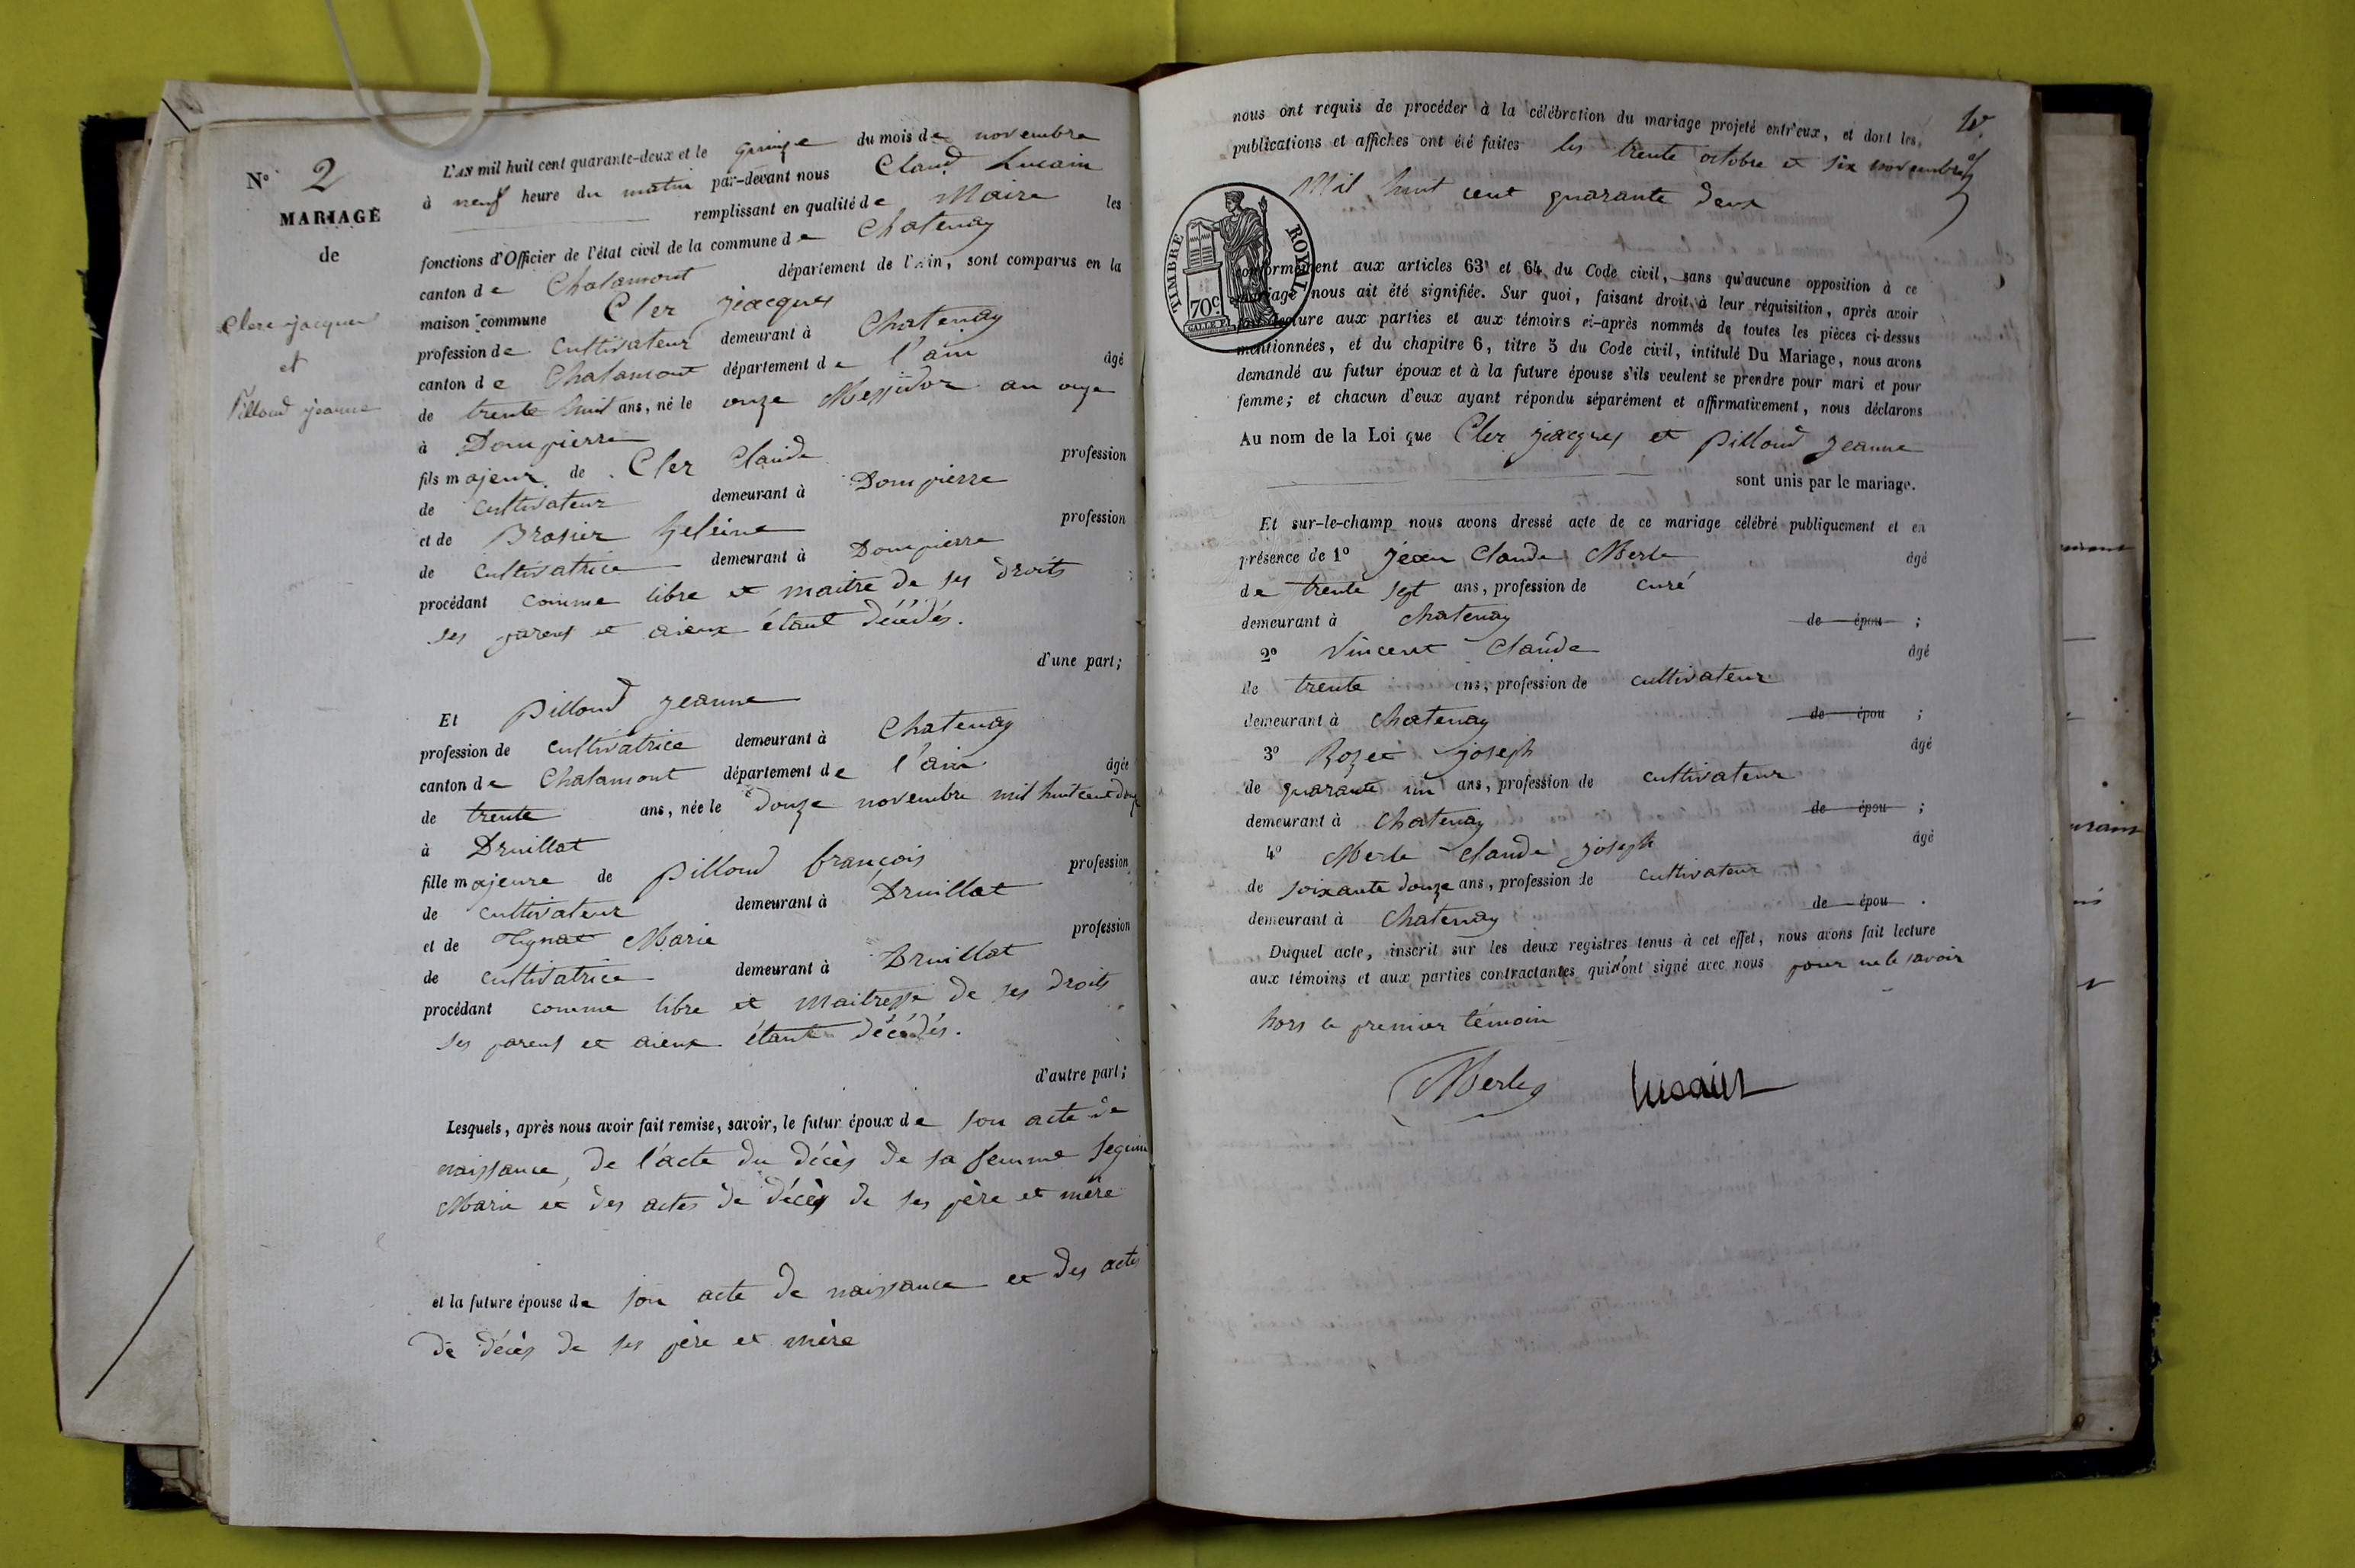 N° 2
MARIAGE
de
Clerc jacques
et
Pilloud jeanne
L'AN mil huit cent quarante-deux et le quinze du mois de novembre
à neuf heure du matin par-devant nous Claud Lucain
remplissant en qualité de Maire les
fonctions d'Officier de l'état civil de la commune de Chatenay
canton de Chalamont département de l'Ain, sont comparus en la
maison commune Cler jacques
profession de cultivateur demeurant à Chatenay
canton de Chalamont département de l'ain âgé
de trente huit ans, né le onze Messidor an onze
à Dompierre
fils majeur de Cler Claude profession
de cultivateur demeurant à Dompierre
et de Brosier heleine profession
de cultivatrice demeurant à Dompierre
procédant comme libre et maitre de ses droits
ses parens et aieux étant décédés.
d'une part;
Et pilloud jeanne
profession de cultivatrice demeurant à Chatenay
canton de Chalamont département de l'ain âgée
de trente ans, née le douze novembre mil huit cent douze
à Druillat
fille majeure de pilloud françois profession
de cultivateur demeurant à Druillat
et de Marie profession
de cultivatrice demeurant à Druillat
procédant comme libre et maitresse de ses droits
ses parens et aieux étant décédés.
d'autre part;
Lesquels, après nous avoir fait remise, savoir, le futur époux de son acte de
naissance, de l'acte du décès de sa femme Seguin
Marie et des actes de décès de ses père et mère
et la future épouse de son acte de naissance et des actes
de décès de ses père et mère
nous ont requis de procéder à la célébration du mariage projeté entr'eux, et dont les
publications et affiches ont été faites les trente octobre et six novembre
Mil huit cent quarante deux
TIMBRE ROYAL
70c.
conformément aux articles 63 et 64 du Code civil, sans qu'aucune opposition à ce
mariage nous ait été signifiée. Sur quoi, faisant droit à leur réquisition, après avoir
fait lecture aux parties et aux témoins ci-après nommés de toutes les pièces ci-dessus
mentionnées, et du chapitre 6, titre 5 du Code civil, intitulé Du Mariage, nous avons
demandé au futur époux et à la future épouse s'ils veulent se prendre pour mari et pour
femme; et chacun d'eux ayant répondu séparément et affirmativement, nous déclarons
Au nom de la Loi que Cler jacques et pilloud jeanne
sont unis par le mariage.
Et sur-le-champ nous avons dressé acte de ce mariage célébré publiquement et en
présence de 1° jean Claude Merle âgé
de trente sept ans, profession de curé
demeurant à chatenay de épou ;
2° Vincent Claude âgé
de trente ans, profession de cultivateur
demeurant à Chatenay de épou ;
3° Rozet joseph âgé
de quarante un ans, profession de cultivateur
demeurant à Chatenay de épou ;
4° Merle Claude joseph âgé
de soixante douze ans, profession de cultivateur
demeurant à Chatenay de épou .
Duquel acte, inscrit sur les deux registres tenus à cet effet, nous avons fait lecture
aux témoins et aux parties contractantes qui n'ont signé avec nous pour ne le savoir
hors le premier témoin
Merle Lucain